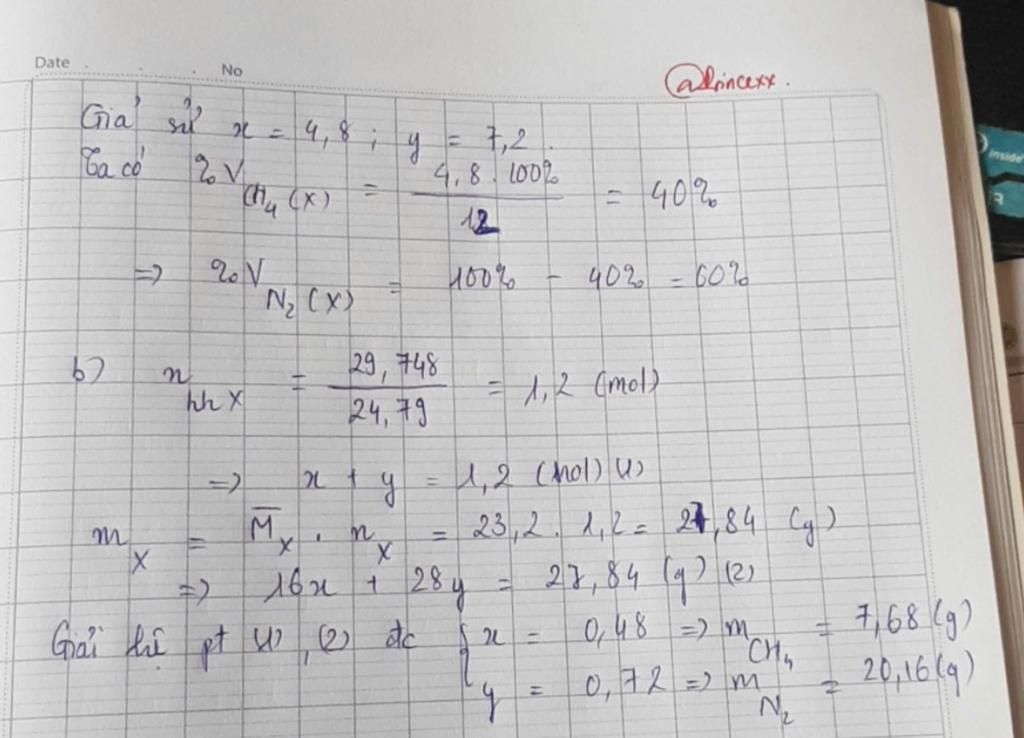 Date . . . No
@lincexx.
Giả sử x = 4,8 ; y = 7,2.
Ta có %V CH₄ (X) = 4,8 . 100% / 12 = 40%
=> %V N₂ (X) = 100% - 40% = 60%
b) n hh X = 29,748 / 24,79 = 1,2 (mol)
=> x + y = 1,2 (mol) (1)
m X = M̅ X . n X = 23,2 . 1,2 = 27,84 (g)
=> 16x + 28y = 27,84 (g) (2)
Giải hệ pt (1), (2) đc { x = 0,48 => m CH₄ = 7,68 (g)
y = 0,72 => m N₂ = 20,16 (g)
inside